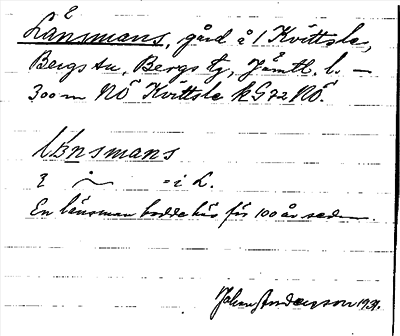 Länsmans, gård å / Kvittsle,
Bergs sn, Bergs tg, Jämtl. l. –
300 m NÖ Kvittsle kG72NÖ.
Länsmans
= i L.
En länsman bodde här för 100 år sedan.
Johan Anderson 1931.